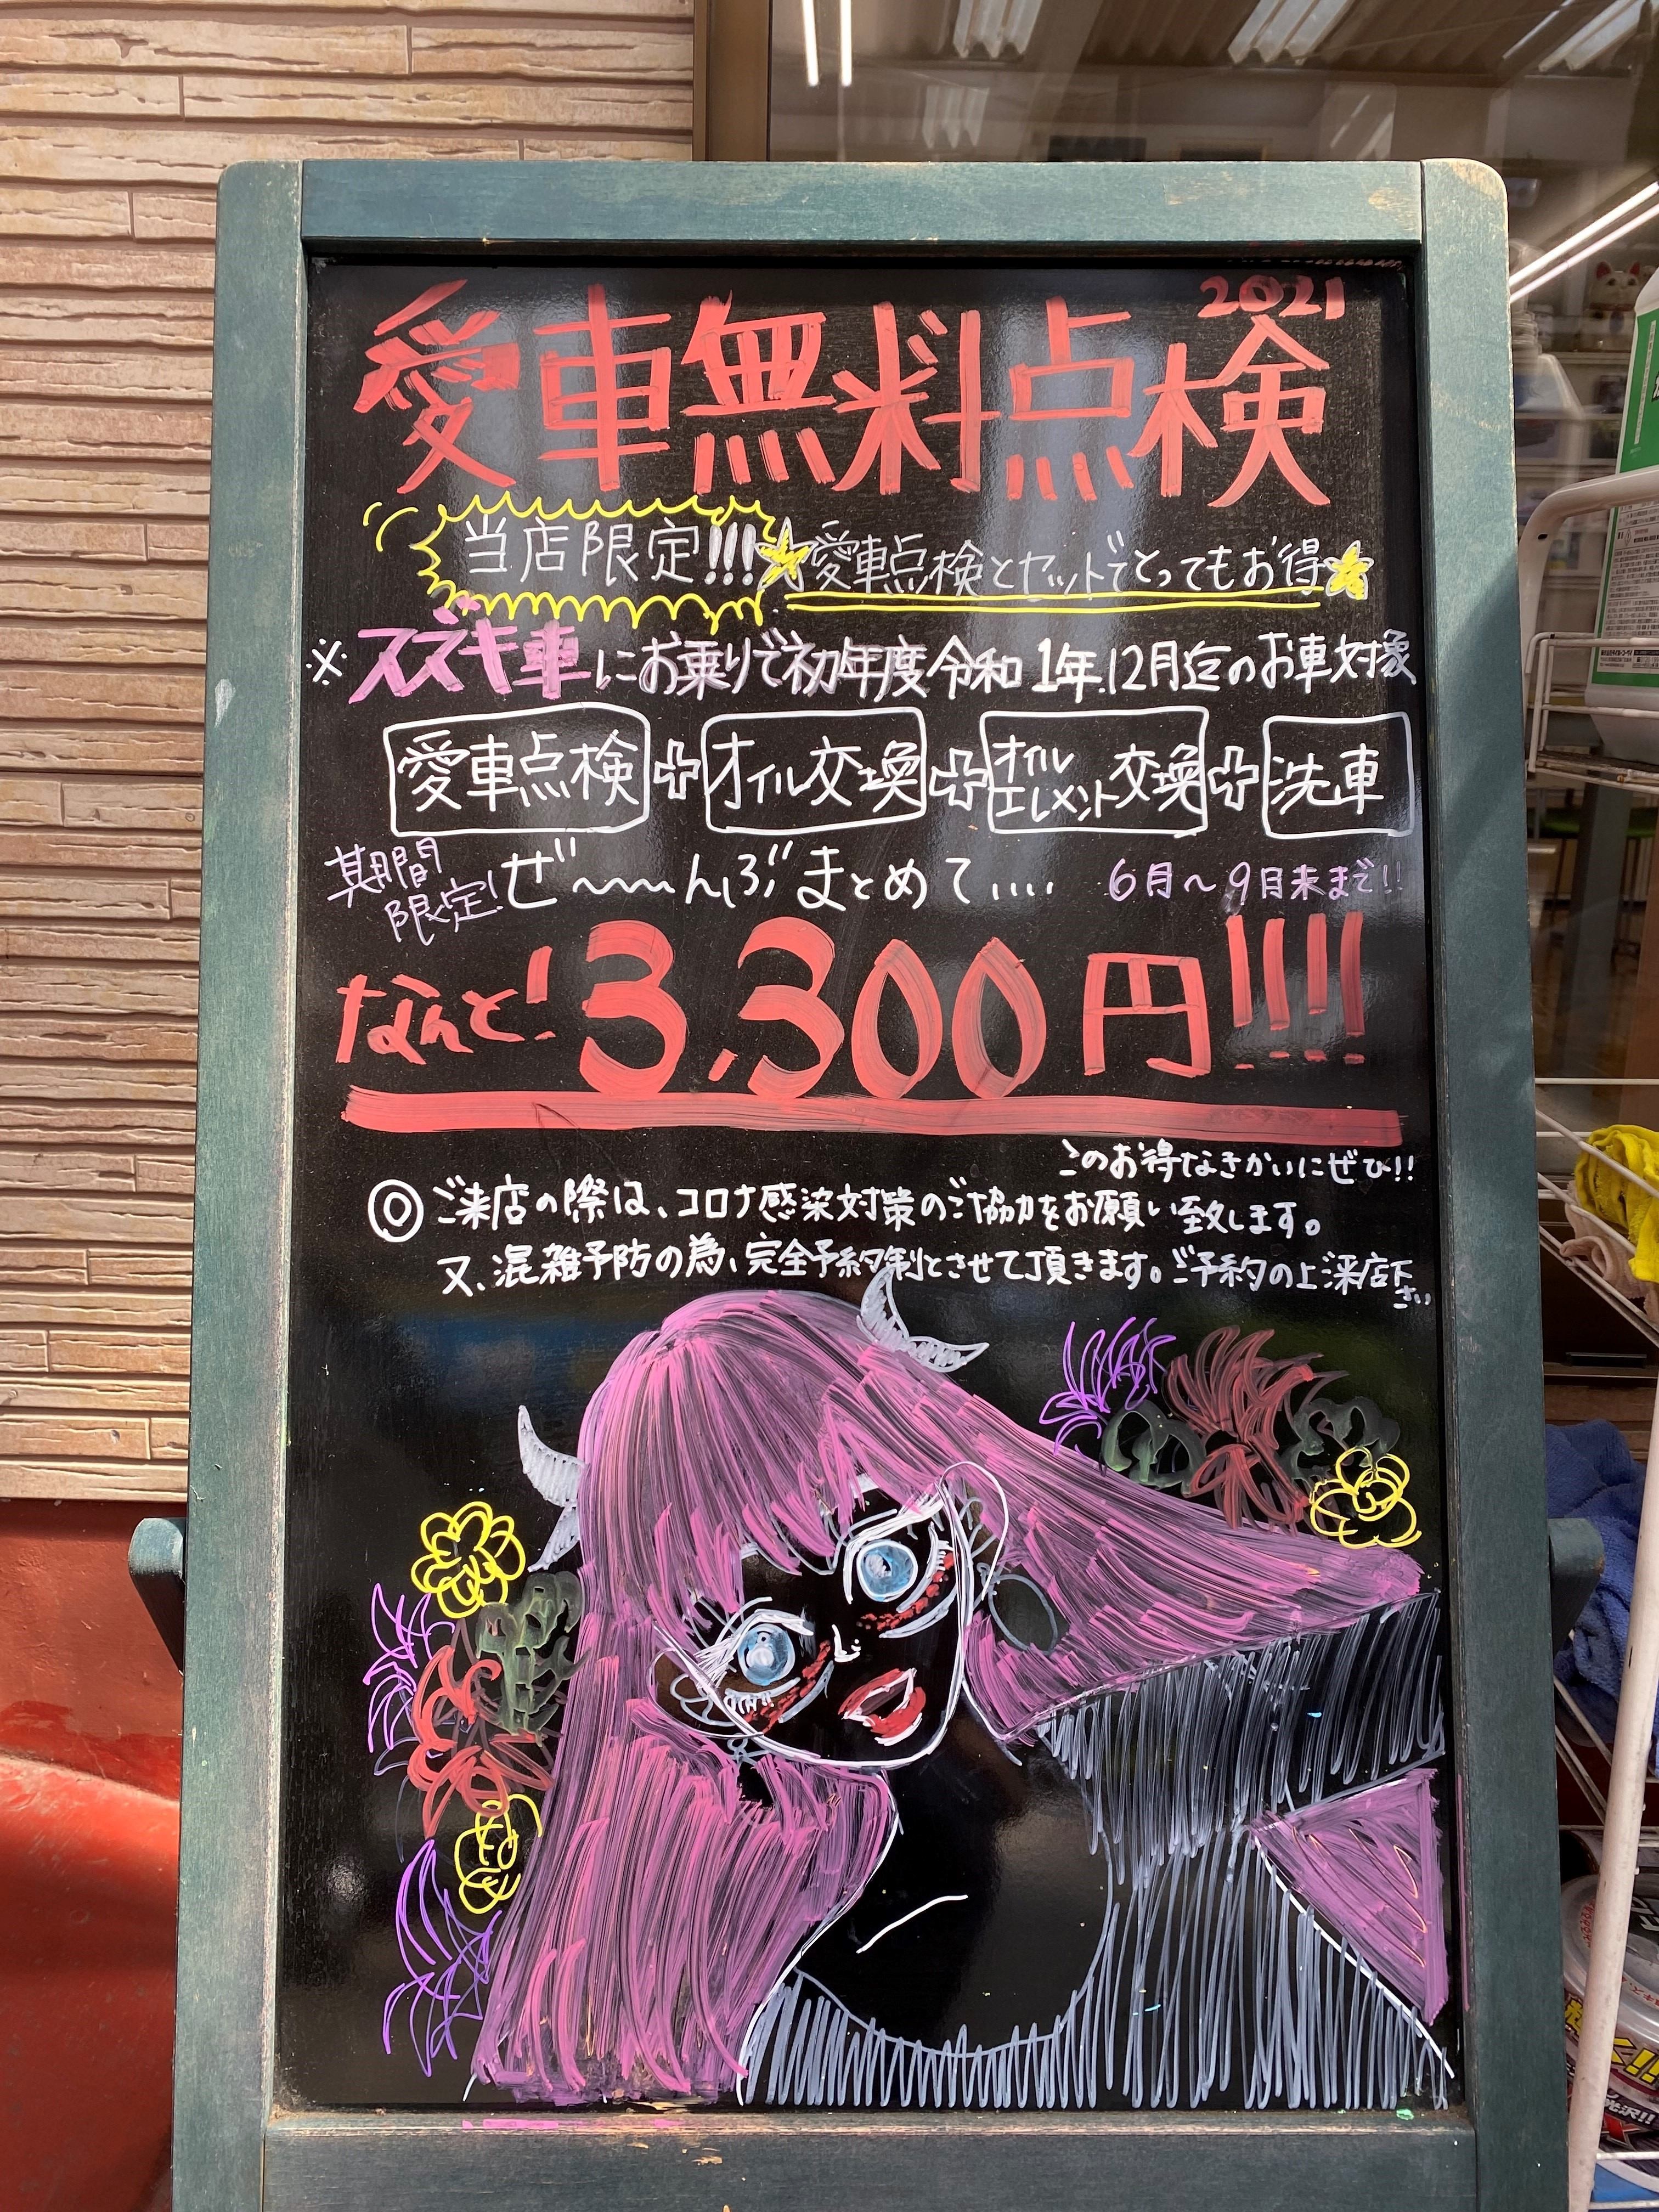 2021
愛車無料点検
当店限定!!! 愛車点検とセットでとってもお得
※スズキ車にお乗りで初年度令和1年.12月迄のお車対象
愛車点検+オイル交換+オイルエレメント交換+洗車
期間限定! ぜ〜〜〜んぶまとめて.... 6月〜9月末まで!!
なんと! 3,300円!!!!
このお得なきかいにぜひ!!
◎ご来店の際は、コロナ感染対策のご協力をお願い致します。
又、混雑予防の為、完全予約制とさせて頂きます。ご予約の上ご来店下さい